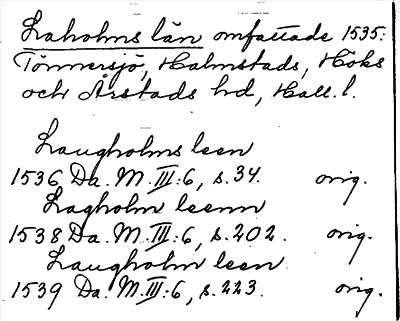 Laholms län omfattade 1535:
Tönnersjö, Halmstads, Höks
och Årstads hd, Hall. l.
Laugholms leen
1536 Da. M. III:6, s. 34. orig.
Lagholm leenn
1538 Da. M. III:6, s. 202. orig.
Laugholm leen
1539 Da. M. III:6, s. 223. orig.